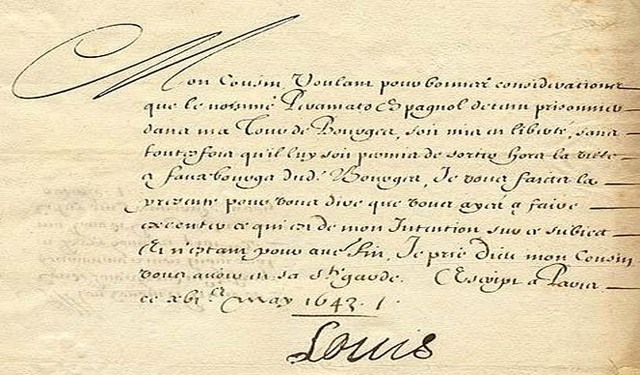 Mon Cousin Voulant pour bonnes considerations
que le nommé Espagnol detenu prisonnier
dans ma Tour de Bourges, soit mis en liberté, sans
toutesfois qu'il luy soit permis de sortir hors la ville
& fauxbourgs dud. Bourges, Je vous la
presente pour vous dire que vous ayez a faire
executer ce qui est de mon Intention sur ce subiect
Et n'estant pour fin, Je prie Dieu mon Cousin
vous avoir en sa Ste garde. Escript a Paris
ce May 1643 ./.
Louis